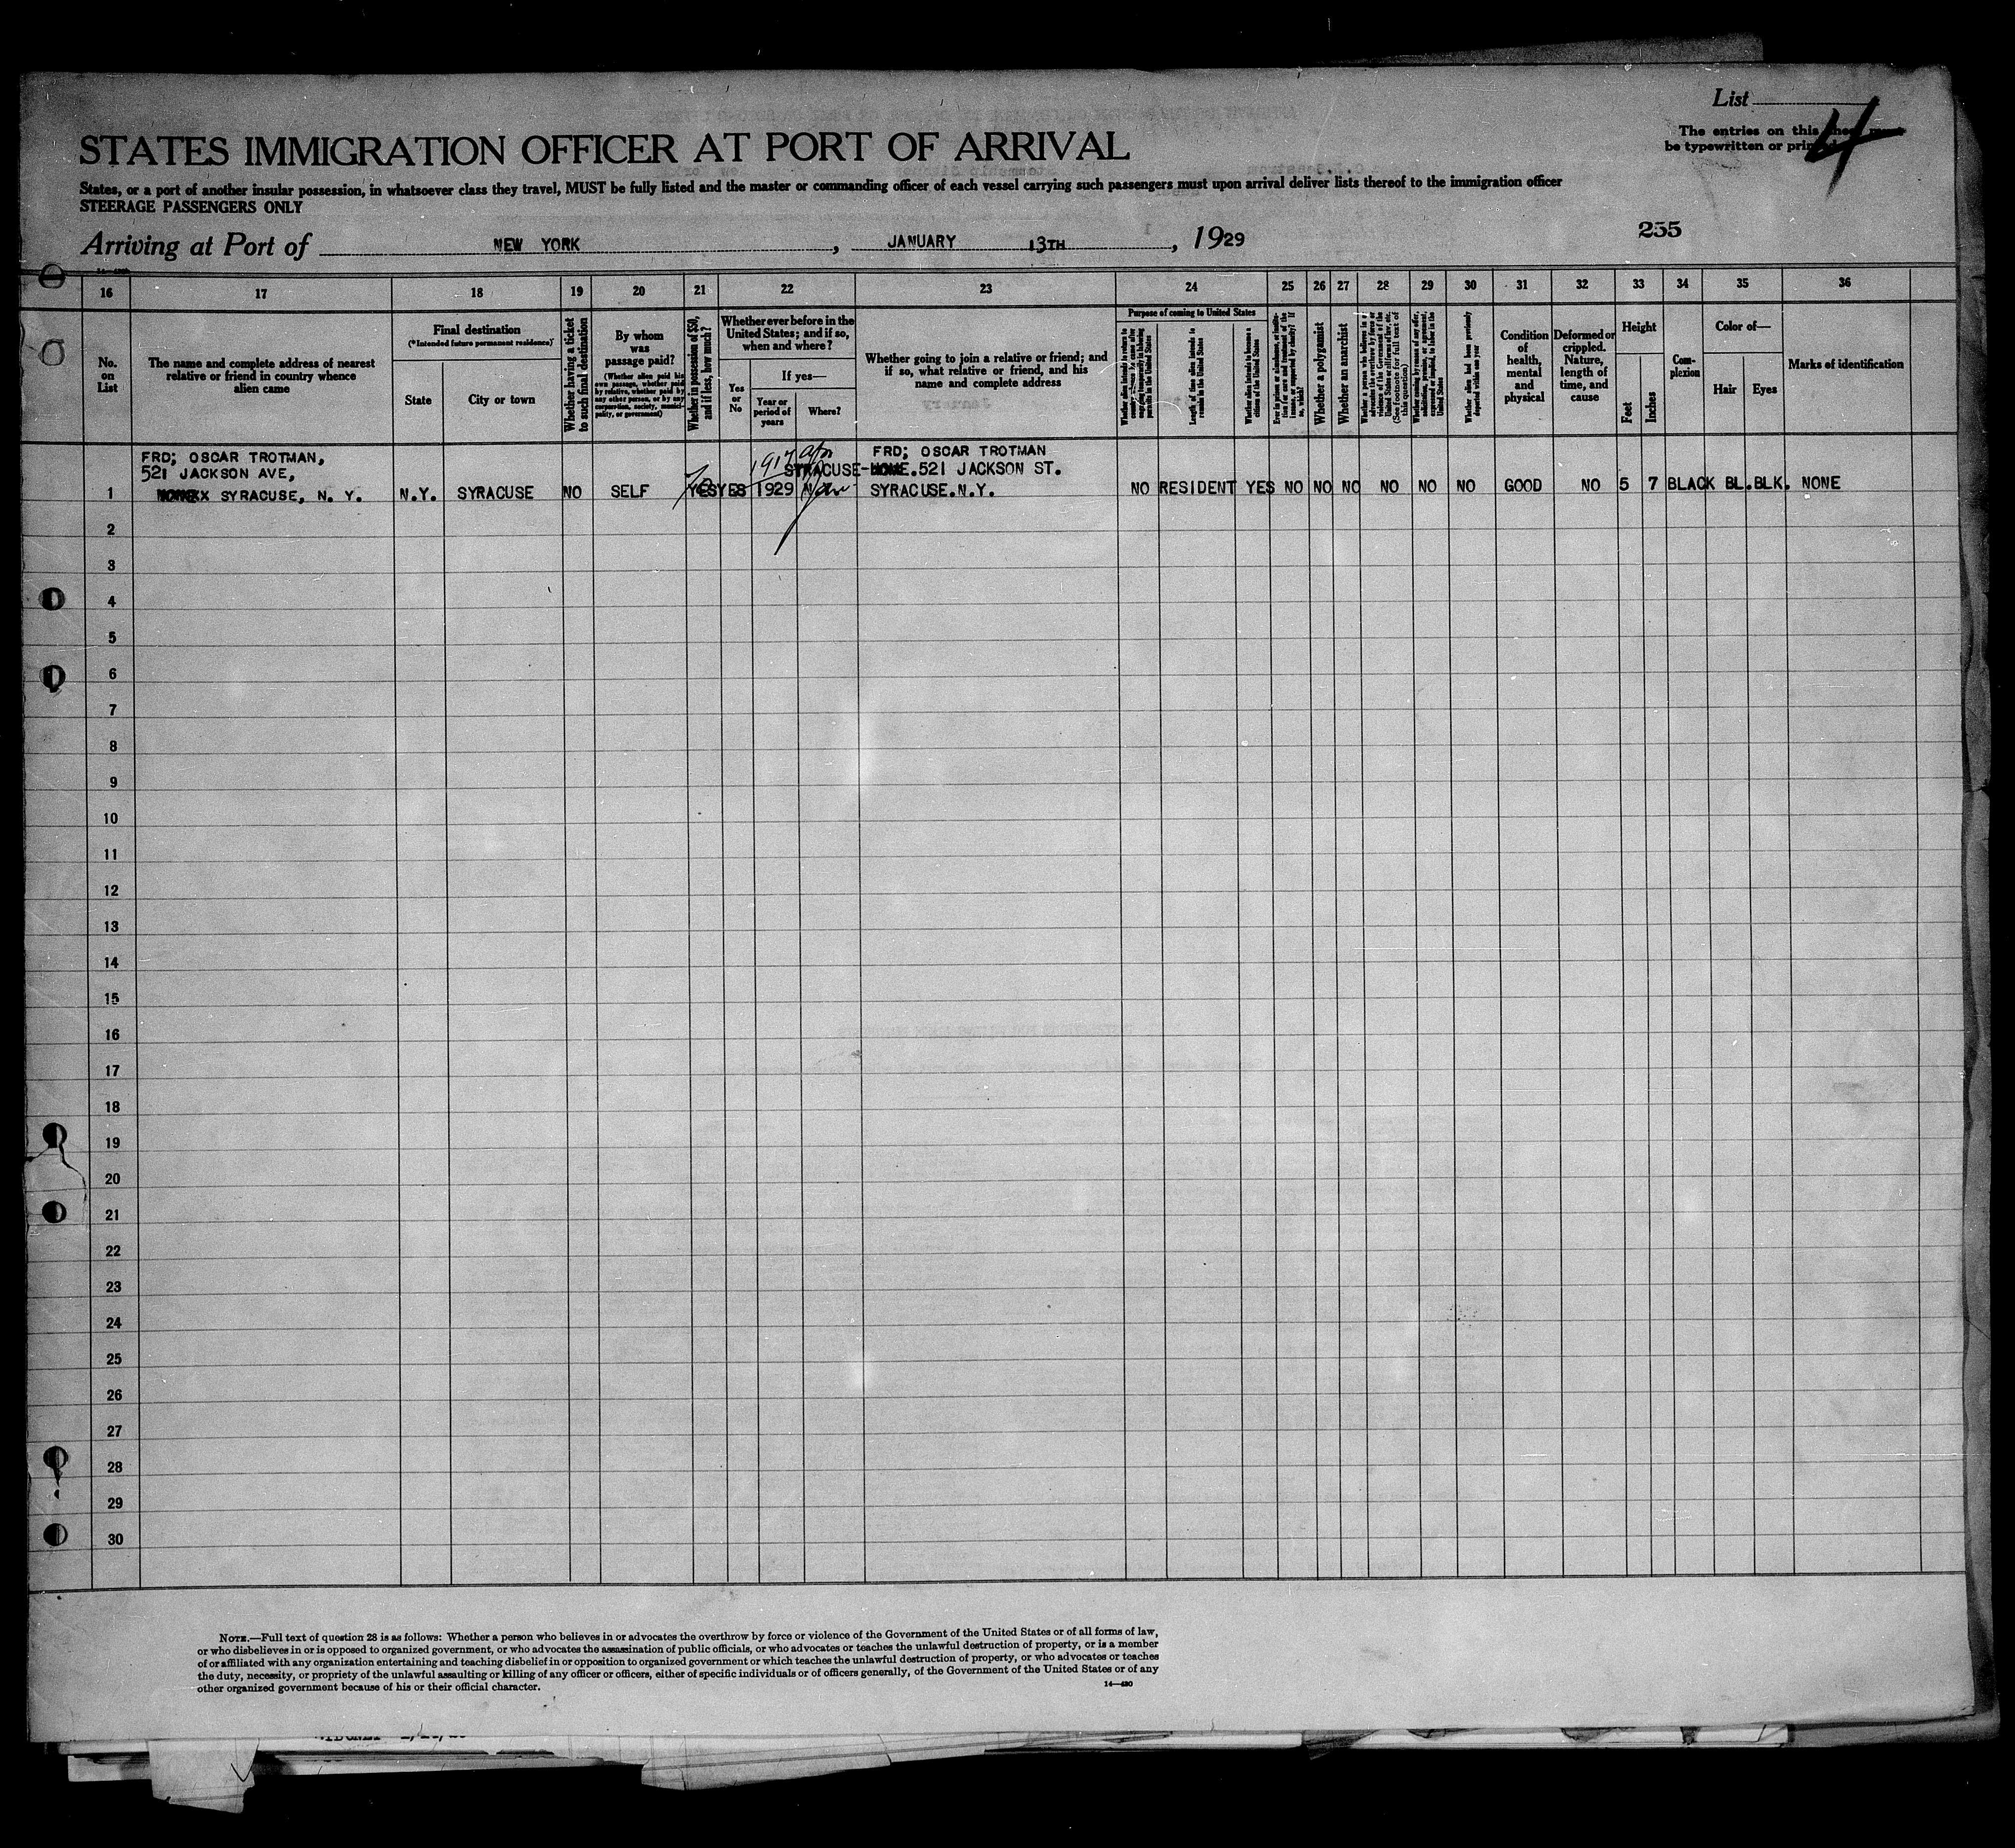 List
4
The entries on this sheet must
be typewritten or printed
STATES IMMIGRATION OFFICER AT PORT OF ARRIVAL
States, or a port of another insular possession, in whatsoever class they travel, MUST be fully listed and the master or commanding officer of each vessel carrying such passengers must upon arrival deliver lists thereof to the immigration officer
STEERAGE PASSENGERS ONLY
255
Arriving at Port of NEW YORK , JANUARY 13TH , 1929
16 17 18 19 20 21 22 23 24 25 26 27 28 29 30 31 32 33 34 35 36
No. on List
The name and complete address of nearest relative or friend in country whence alien came
Final destination
(*Intended future permanent residence)
State
City or town
Whether having a ticket to such final destination
By whom was passage paid?
(Whether alien paid his own passage, whether paid by relative, whether paid by any other person, or by any corporation, society, municipality, or government)
Whether in possession of $50, and if less, how much?
Whether ever before in the United States; and if so, when and where?
Yes or No
If yes—
Year or period of years
Where?
Whether going to join a relative or friend; and if so, what relative or friend, and his name and complete address
Purpose of coming to United States
Length of time alien intends to remain in the United States
Whether alien intends to become a citizen of the United States
Whether a polygamist
Whether an anarchist
(See footnote for full text of this question)
Whether alien had been previously deported within one year
Condition of health, mental and physical
Deformed or crippled. Nature, length of time, and cause
Height
Feet
Inches
Complexion
Color of—
Hair
Eyes
Marks of identification
FRD; OSCAR TROTMAN, 1917 FRD; OSCAR TROTMAN
521 JACKSON AVE, SYRACUSE-HOME. 521 JACKSON ST.
1 SYRACUSE, N. Y. N.Y. SYRACUSE NO SELF YES YES 1929 SYRACUSE.N.Y. NO RESIDENT YES NO NO NO NO NO NO GOOD NO 5 7 BLACK BL. BLK. NONE
2
3
4
5
6
7
8
9
10
11
12
13
14
15
16
17
18
19
20
21
22
23
24
25
26
27
28
29
30
NOTE.—Full text of question 28 is as follows: Whether a person who believes in or advocates the overthrow by force or violence of the Government of the United States or of all forms of law,
or who disbelieves in or is opposed to organized government, or who advocates the assassination of public officials, or who advocates or teaches the unlawful destruction of property, or is a member
of or affiliated with any organization entertaining and teaching disbelief in or opposition to organized government or which teaches the unlawful destruction of property, or who advocates or teaches
the duty, necessity, or propriety of the unlawful assaulting or killing of any officer or officers, either of specific individuals or of officers generally, of the Government of the United States or of any
other organized government because of his or their official character.
14—430